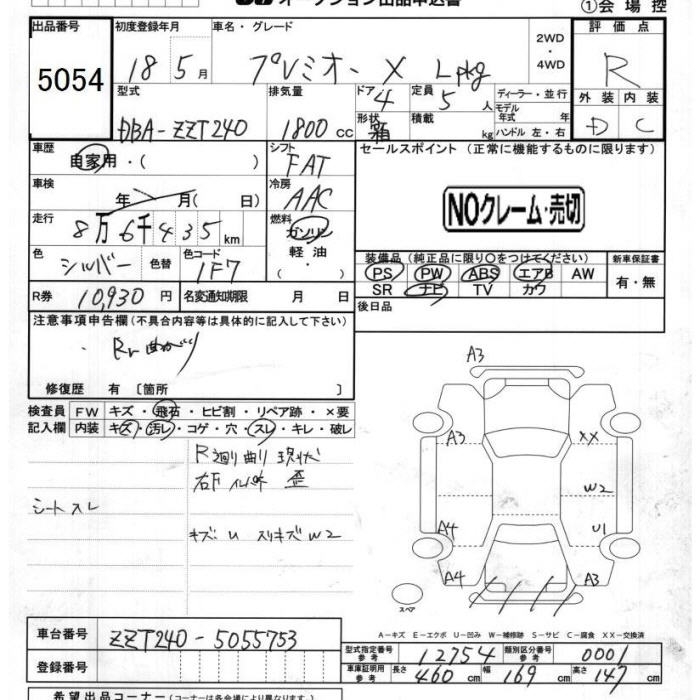 オークション出品申込書
①会場控
出品番号 5054
初度登録年月 18 5月
車名・グレード プレミオ - X Lpkg
2WD・4WD
評価点 R
外装 D 内装 C
型式 DBA-ZZT240
排気量 1800cc
ドア 4 形状 箱
定員 5人 積載 kg
ディーラー・並行
モデル年式 年
ハンドル 左・右
車歴 自家用・( )
シフト FAT
セールスポイント (正常に機能するものに限ります)
NOクレーム・売切
車検 年 月(日)
冷房 AAC
走行 8万6千435km
燃料 ガソリン 軽油 ・( )
色 シルバー 色替
色コード 1F7
装備品 (純正品に限り〇をつけてください)
PS PW ABS エアB AW
SR ナビ TV カワ
新車保証書 有・無
R券 10,930円
名変通知期限 月 日
後日品
注意事項申告欄 (不具合内容等は具体的に記入して下さい)
・Rr曲がり
修復歴 有 [箇所 ]
検査員記入欄
FW キズ・飛石・ヒビ割・リペア跡・×要
内装 キズ・汚レ・コゲ・穴・スレ・キレ・破レ
R廻り曲り現状
シートスレ
キズ U スリキズ W2
A3
A3 XX
W2
A4 U1
A4 A3
スペア
A-キズ E-エクボ U-凹み W-補修跡 S-サビ C-腐食 XX-交換済
車台番号 ZZT240-5055753
登録番号
型式指定番号 参考 12754 類別区分番号 参考 0001
車庫証明用 参考 長さ 460cm 幅 169cm 高さ 147cm
希望出品コーナー (コーナーは各会場により異なります。)